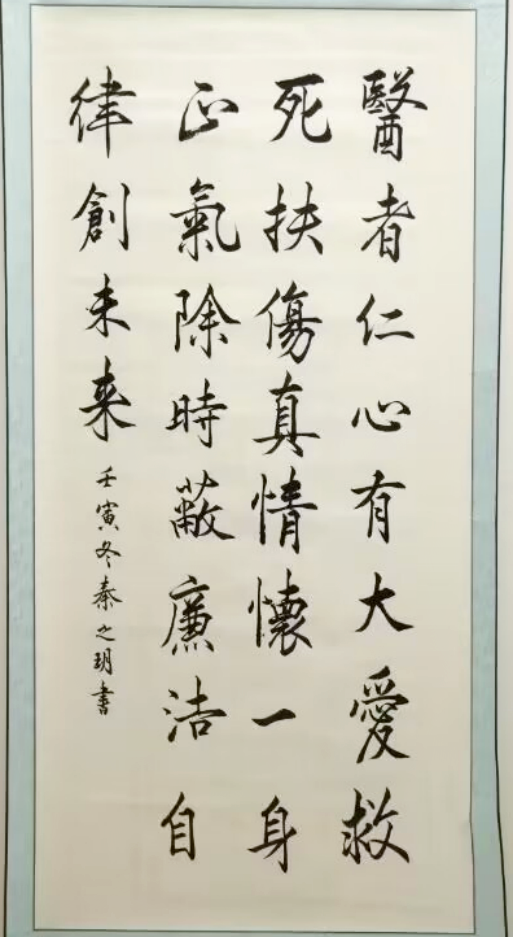 醫者仁心有大愛救
死扶傷真情懷一身
正氣除時蔽廉洁自
律創未来
壬寅冬秦之玥書